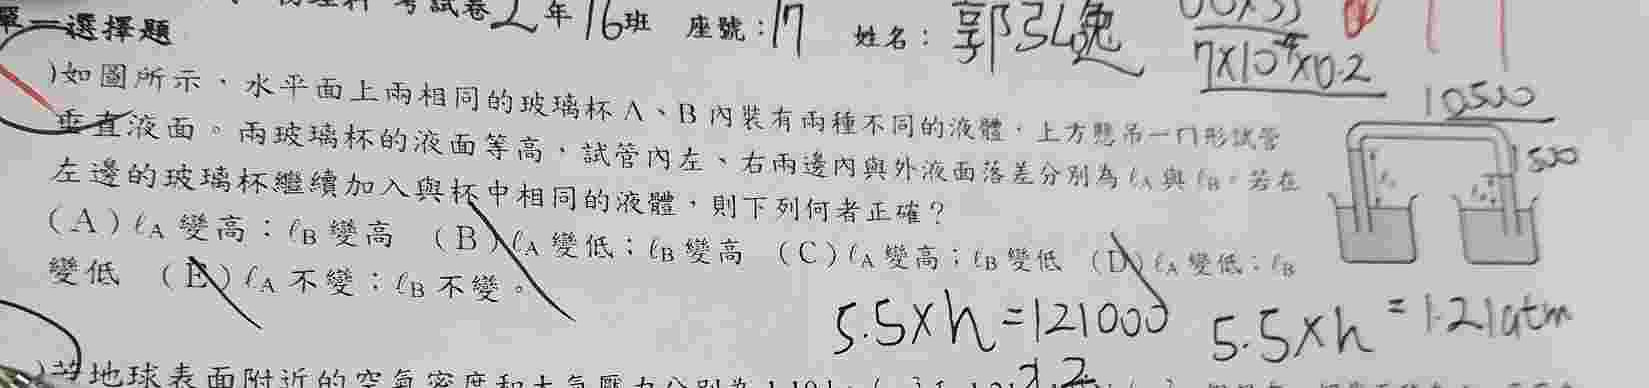 考試卷 2年16班 座號:17 姓名: 郭弘逸
7×10⁴×0.2
單一選擇題
)如圖所示,水平面上兩相同的玻璃杯A、B內裝有兩種不同的液體,上方懸吊一ㄇ形試管
10500
垂直液面。兩玻璃杯的液面等高,試管內左、右兩邊內與外液面落差分別為ℓA與ℓB。若在
1500
左邊的玻璃杯繼續加入與杯中相同的液體,則下列何者正確?
(A)ℓA變高;ℓB變高 (B)ℓA變低;ℓB變高 (C)ℓA變高;ℓB變低 (D)ℓA變低;ℓB
變低 (E)ℓA不變;ℓB不變。
5.5×h=121000 5.5×h=1.21atm
)若地球表面附近的空氣密度和大氣壓力分別為